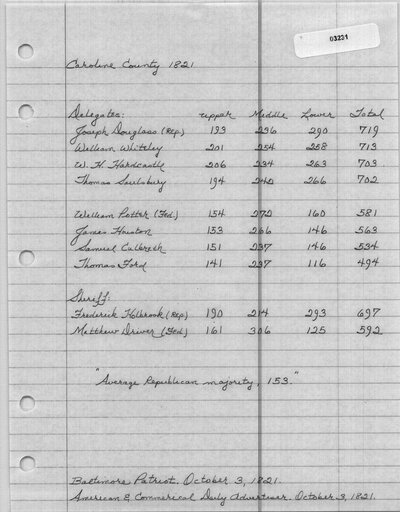 03231
Caroline County 1821
Delegates: Upper Middle Lower Total
Joseph Douglass (Rep.) 193 236 290 719
William Whiteley 201 254 258 713
W. H. Hardcastle 206 234 263 703
Thomas Saulsbury 194 242 266 702
William Potter (Fed.) 154 272 160 581
James Houston 153 266 146 563
Samuel Culbreth 151 237 146 534
Thomas Ford 141 237 116 494
Sheriff:
Frederick Holbrook (Rep) 190 214 293 697
Matthew Driver (Fed) 161 306 125 592
"Average Republican majority, 153."
Baltimore Patriot. October 3, 1821.
American & Commercial Daily Advertiser. October 3, 1821.